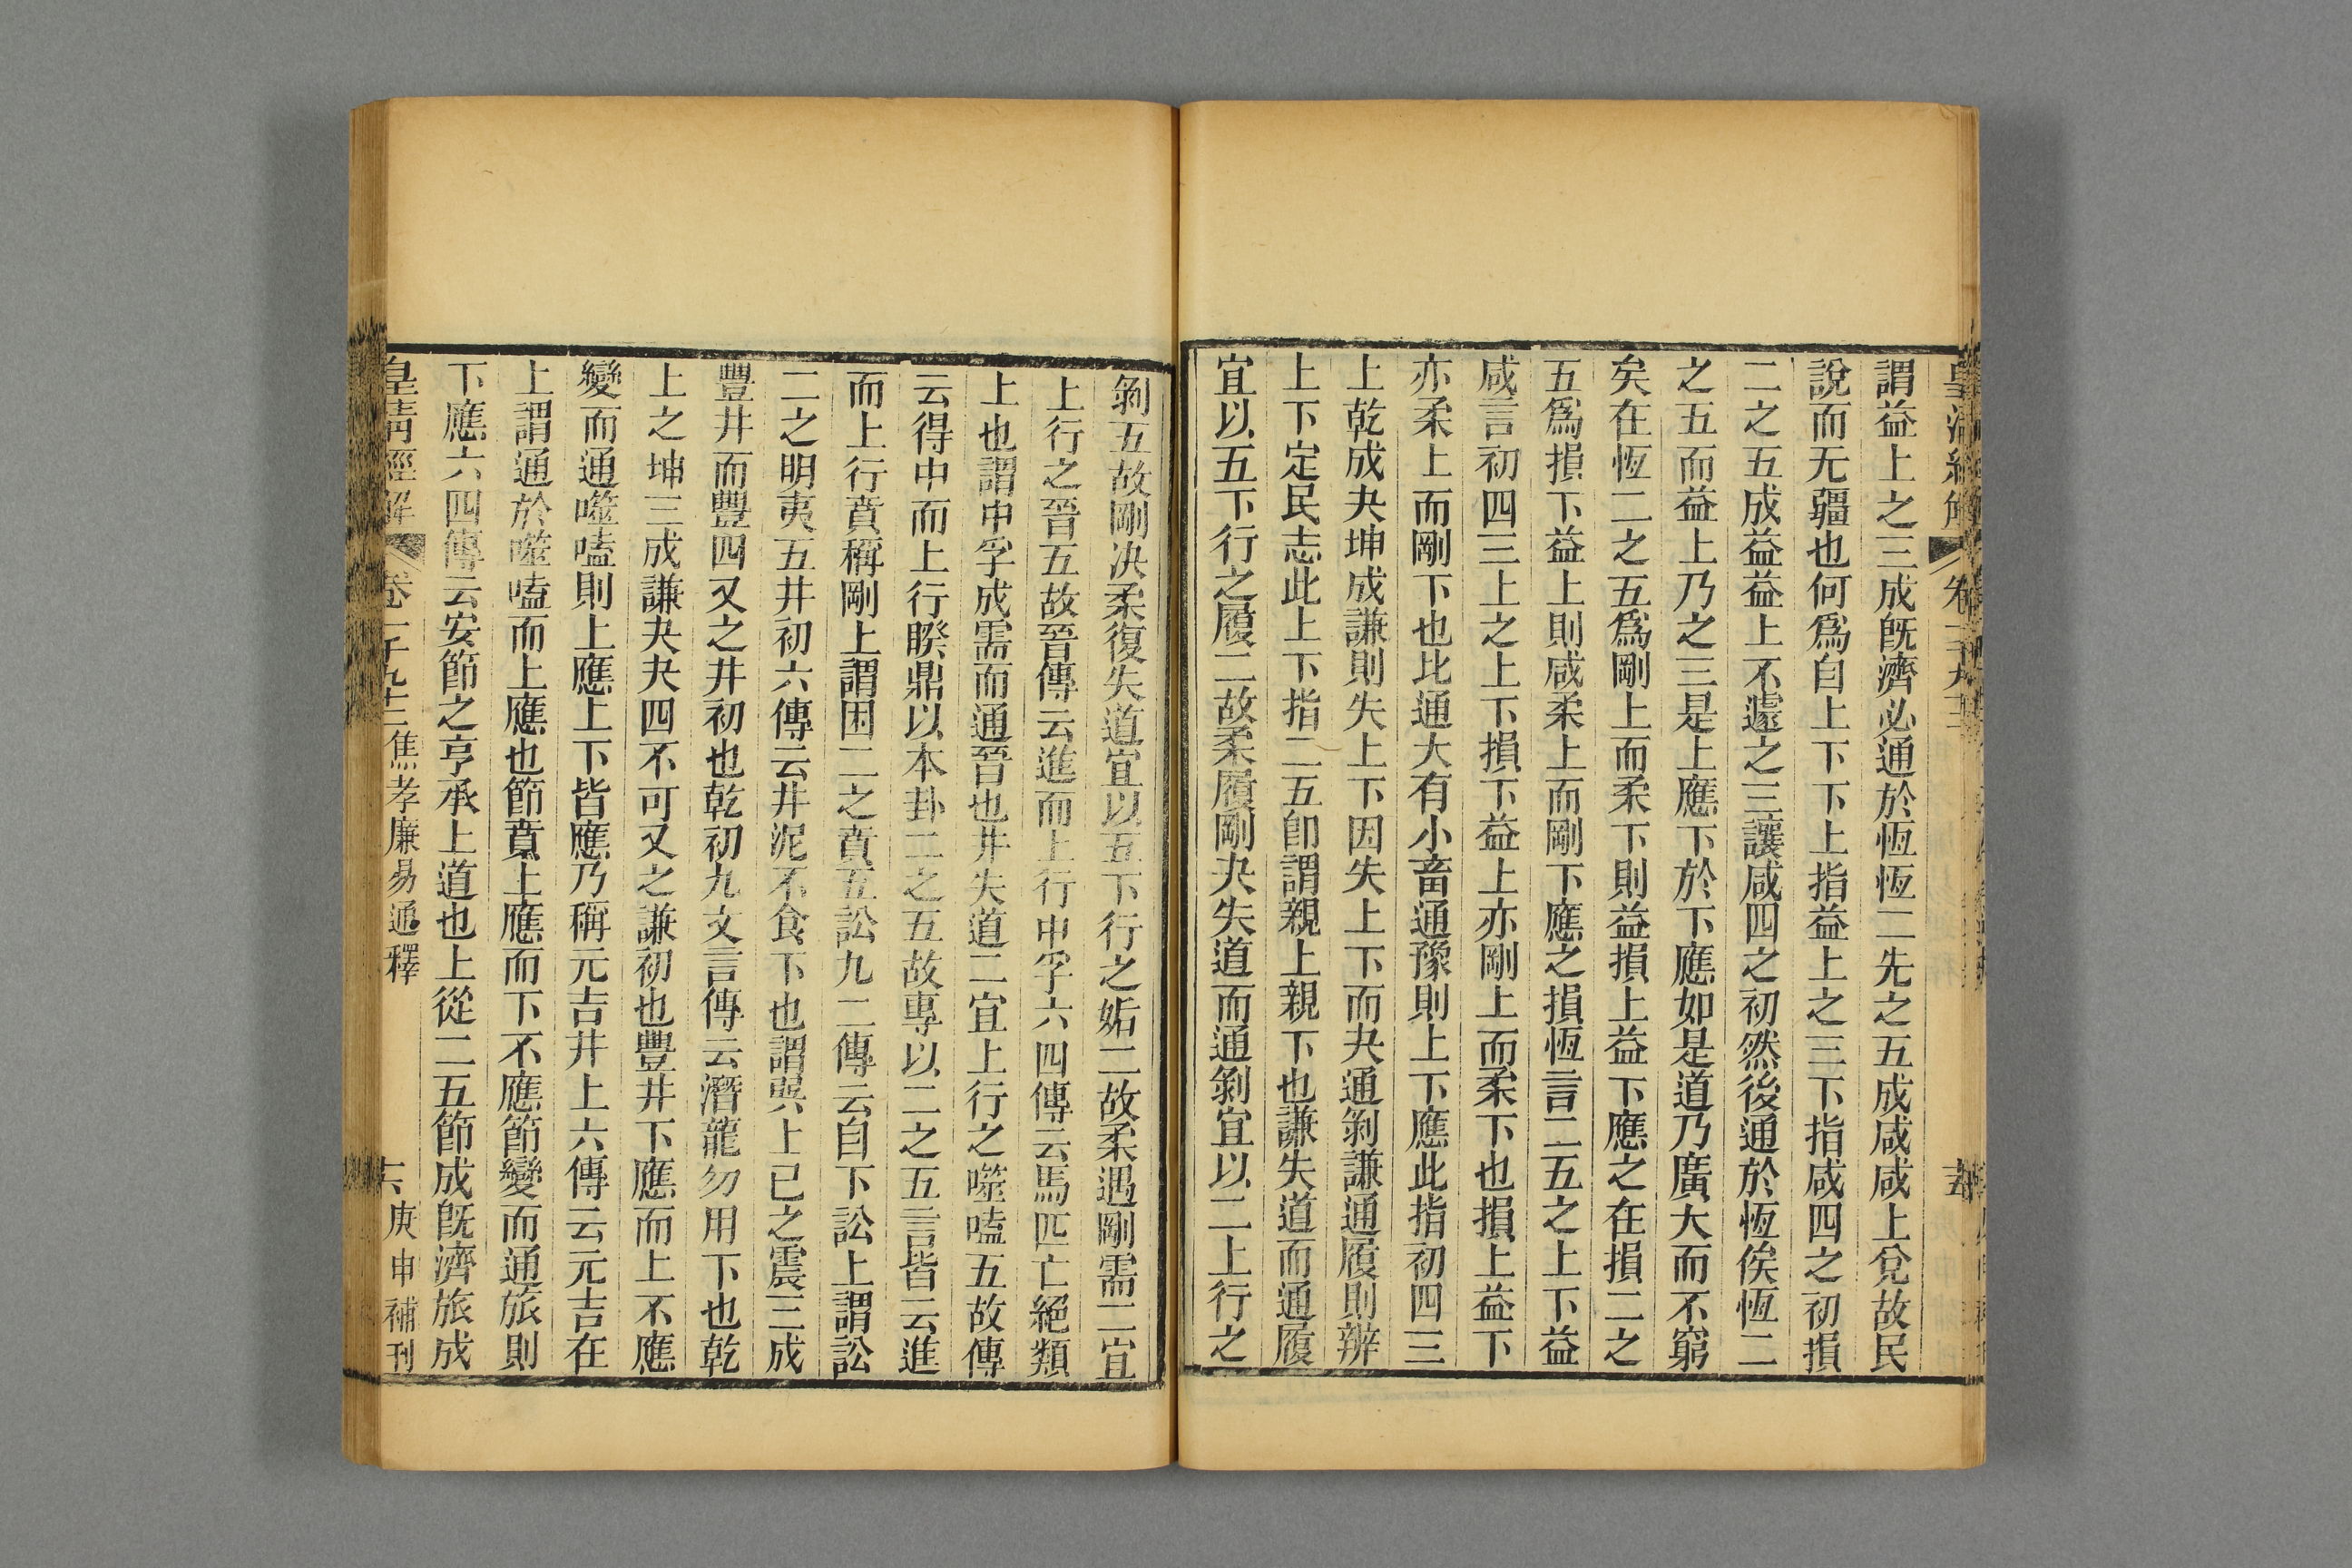 謂益上之三成旣濟必通於恆恆二先之五成咸咸上兌故民
說而无疆也何爲自上下下上指益上之三下指咸四之初損
二之五成益益上不遽之三讓咸四之初然後通於恆俟恆二
之五而益上乃之三是上應下於下應如是道乃廣大而不窮
矣在恆二之五爲剛上而柔下則益損上益下應之在損二之
五爲損下益上則咸柔上而剛下應之損恆言二五之上下益
咸言初四三上之上下損下益上亦剛上而柔下也損上益下
亦柔上而剛下也比通大有小畜通豫則上下應此指初四三
上乾成夬坤成謙則失上下因失上下而夬通剝謙通履則辨
上下定民志此上下指二五卽謂親上親下也謙失道而通履
宜以五下行之履二故柔履剛夬失道而通剝宜以二上行之
剝五故剛決柔復失道宜以五下行之姤二故柔遇剛需二宜
上行之晉五故晉傳云進而上行中孚六四傳云馬匹亡絕類
上也謂中孚成需而通晉也井失道二宜上行之噬嗑五故傳
云得中而上行睽鼎以本卦二之五故專以二之五言皆云進
而上行賁稱剛上謂困二之賁五訟九二傳云自下訟上謂訟
二之明夷五井初六傳云井泥不食下也謂巽上已之震三成
豐井而豐四又之井初也乾初九文言傳云潛龍勿用下也乾
上之坤三成謙夬夬四不可又之謙初也豐井下應而上不應
變而通噬嗑則上應上下皆應乃稱元吉井上六傳云元吉在
上謂通於噬嗑而上應也節賁上應而下不應節變而通旅則
下應六四傳云安節之亨承上道也上從二五節成旣濟旅成
皇淸經解 卷一千九十二 焦孝廉易通釋 六 庚申補刊